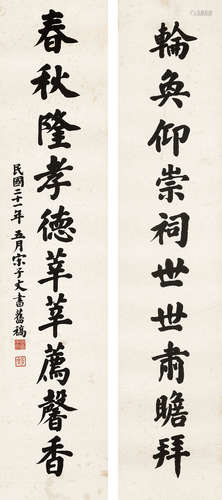 輪奐仰崇祠世世肅瞻拜
春秋隆孝德莘莘薦馨香
民國二十一年五月宋子文書舊稿